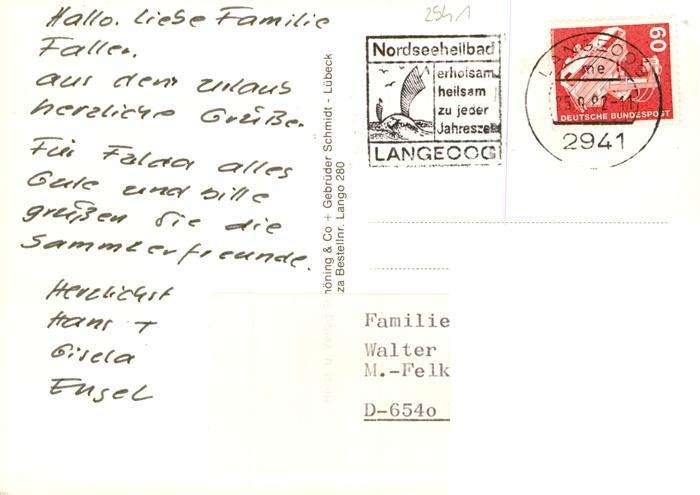 Hallo. Liebe Familie
Faller.
aus dem Urlaub
herzliche Grüße.
Für Fulda alles
Gute und bitte
grüßen Sie die
Sammlerfreunde.
Herzlichst
Hans +
Gisela
Engel
2541
Nordseeheilbad
erholsam
heilsam
zu jeder
Jahreszeit
LANGEOOG
LANGEOOG
me
2941
60
DEUTSCHE BUNDESPOST
höning & Co + Gebrüder Schmidt - Lübeck
za Bestellnr. Lango 280
Familie
Walter
M.-Felk
D-654o